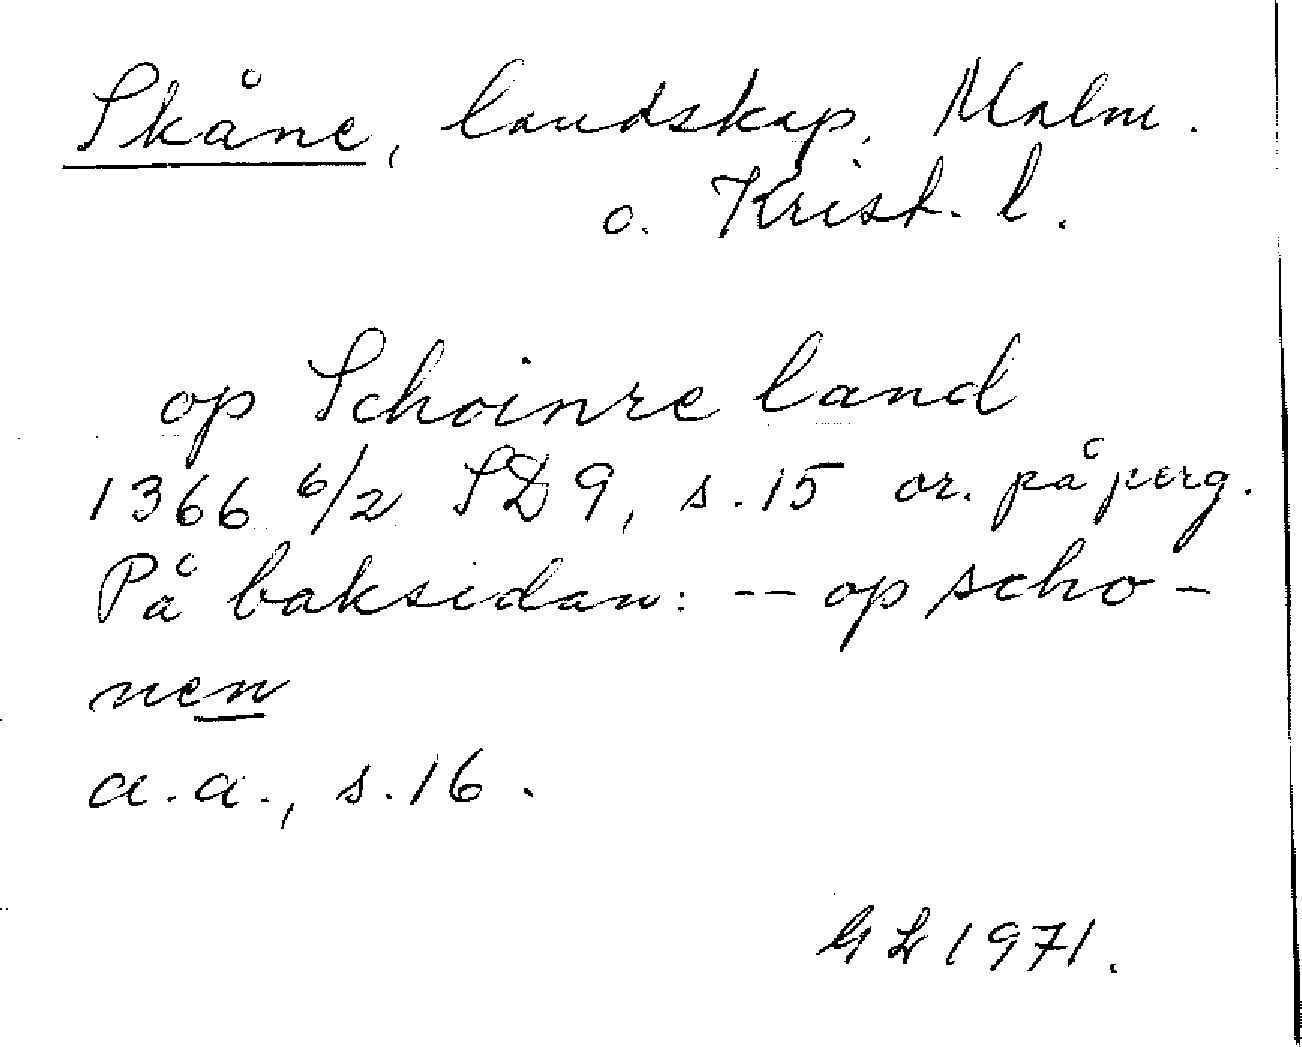 Skåne, landskap, Malm.
o. Krist. l.
op Schoinre land
1366 6/2 SD 9, s. 15 or. på perg.
På baksidan: -- op scho-
nen
a. a., s. 16.
GL 1971.